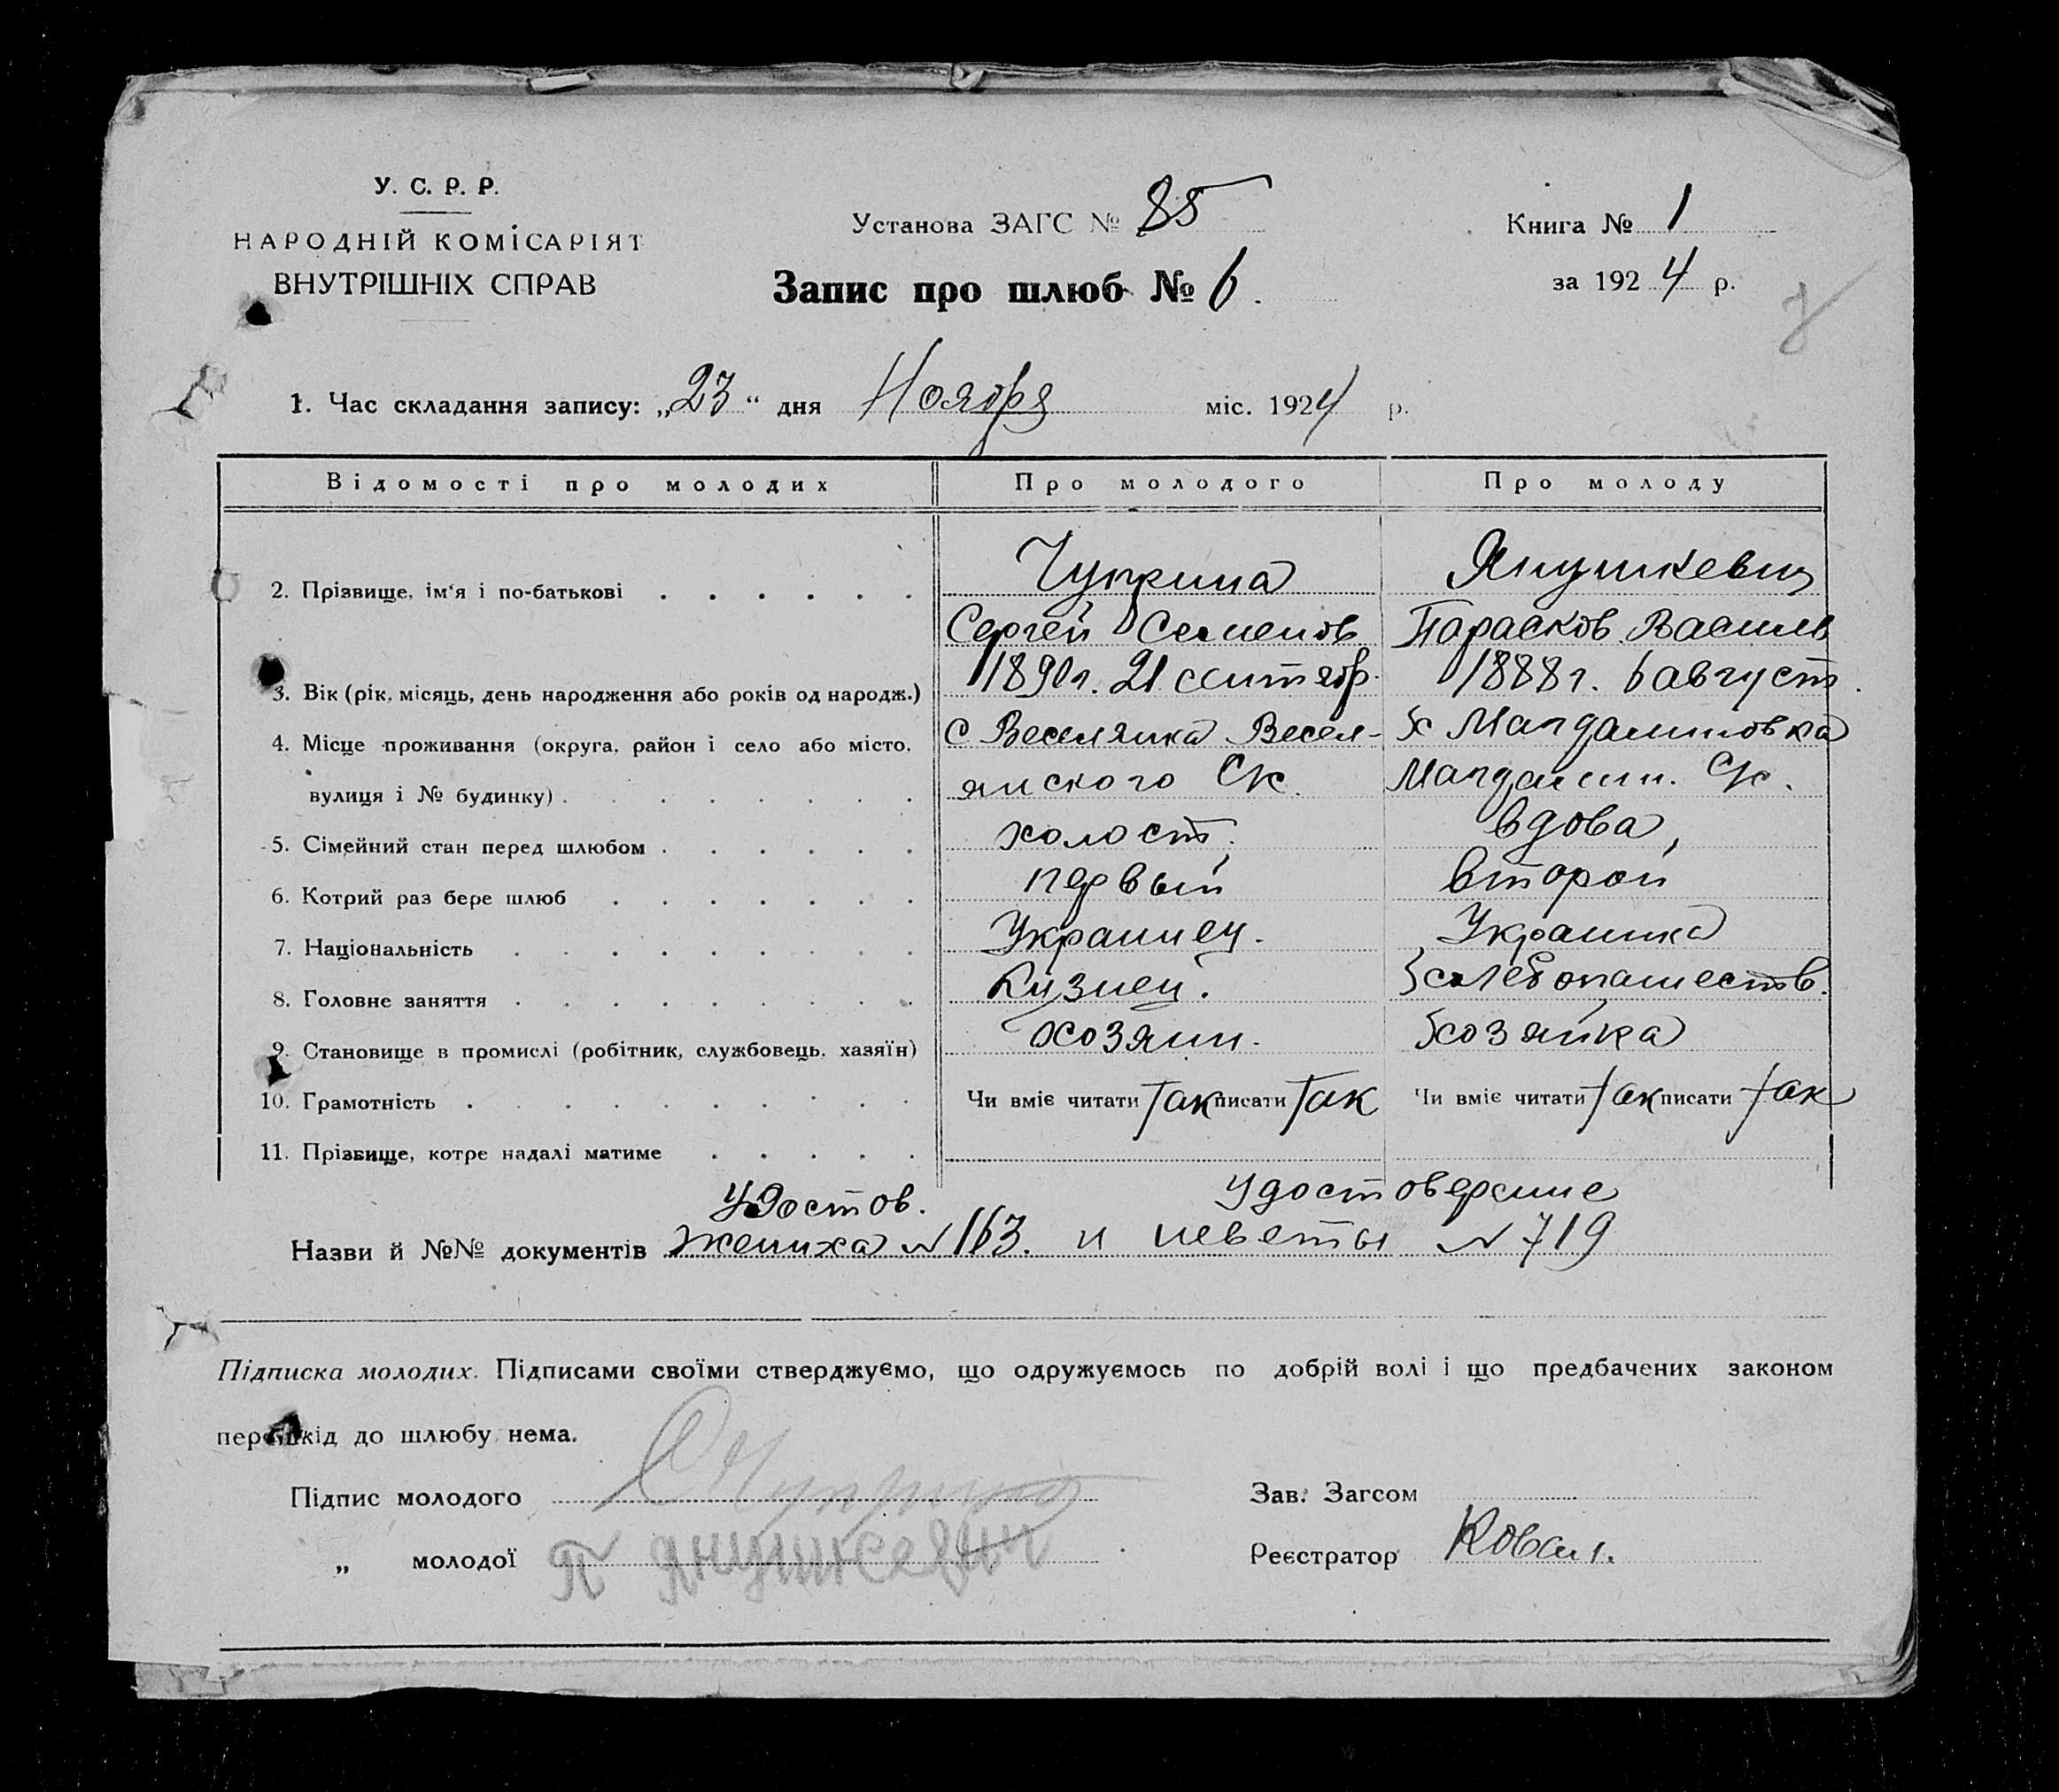 У. С. Р. Р.
НАРОДНІЙ КОМІСАРІЯТ
ВНУТРІШНІХ СПРАВ
Установа ЗАГС № 85
Книга № 1
Запис про шлюб № 6.
за 1924 р.
1. Час складання запису: „23“ дня Ноября міс. 1924 р.
Відомості про молодих Про молодого Про молоду
2. Прізвище, ім'я і по-батькові Чуприна Янушкевич
Сергей Семенов Парасков. Василь
3. Вік (рік, місяць, день народження або років од народж.) 1890 г. 21 сентябр. 1888 г. 6 август.
4. Місце проживання (округа, район і село або місто, С Веселянка Весел- х Магдалиновка
вулиця і № будинку) янского СК. Магдалин. СК.
5. Сімейний стан перед шлюбом холост, вдова,
6. Котрий раз бере шлюб первый второй
7. Національність Украинец. Украинка
8. Головне заняття Кузнец. хлебопашеств.
9. Становище в промислі (робітник, службовець, хазяїн) хозяин. хозяйка
10. Грамотність Чи вміє читати Так писати Так Чи вміє читати Так писати Так
11. Прізвище, котре надалі матиме
Удостов. удостоверение
Назви й №№ документів жениха № 163. и невесты № 719
Підписка молодих. Підписами своїми стверджуємо, що одружуємось по добрій волі і що предбачених законом
перешкід до шлюбу нема.
Підпис молодого СЧуприна Зав. Загсом
„ молодої П Янушкевич Реєстратор Ковал.